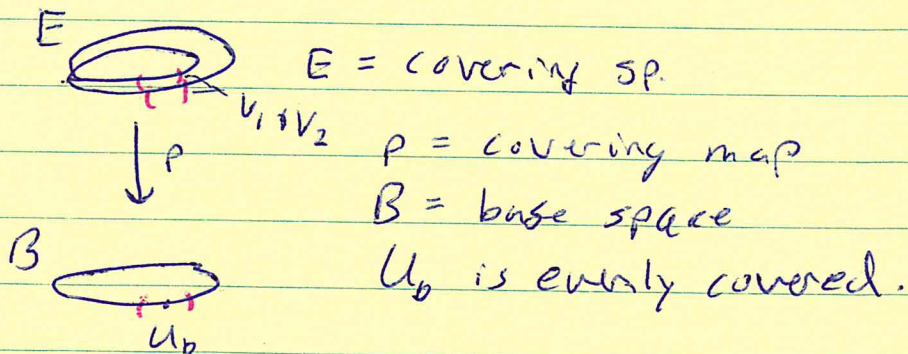 E
E = covering sp.
V₁ & V₂
p
p = covering map
B = base space
B
U_b is evenly covered.
U_b